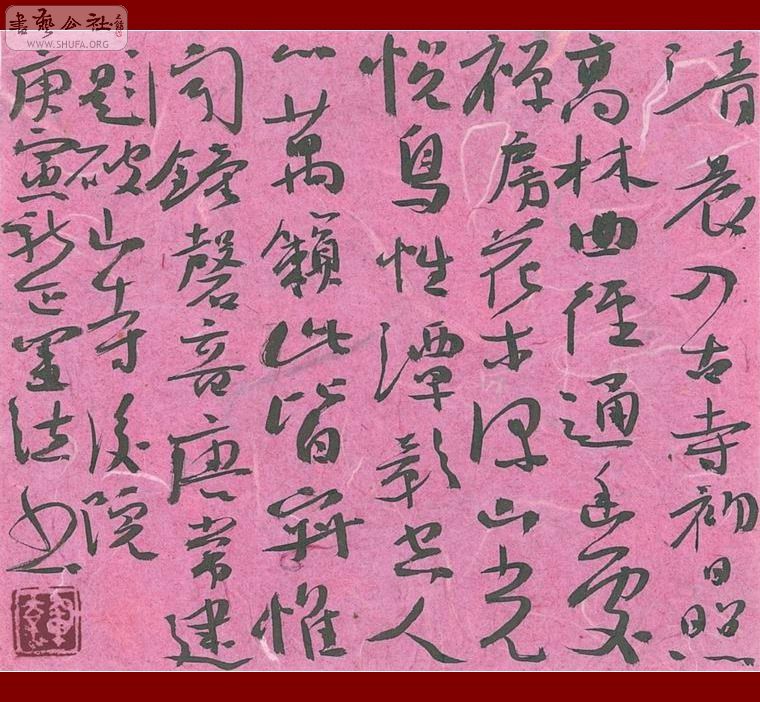 書藝公社
WWW.SHUFA.ORG
清晨入古寺初日照
高林曲徑通幽處
禅房花木深山光
悦鳥性潭影空人
心萬籟此皆寂惟
闻鐘磬音唐常建
题破山寺後院
庚寅新正墨法书